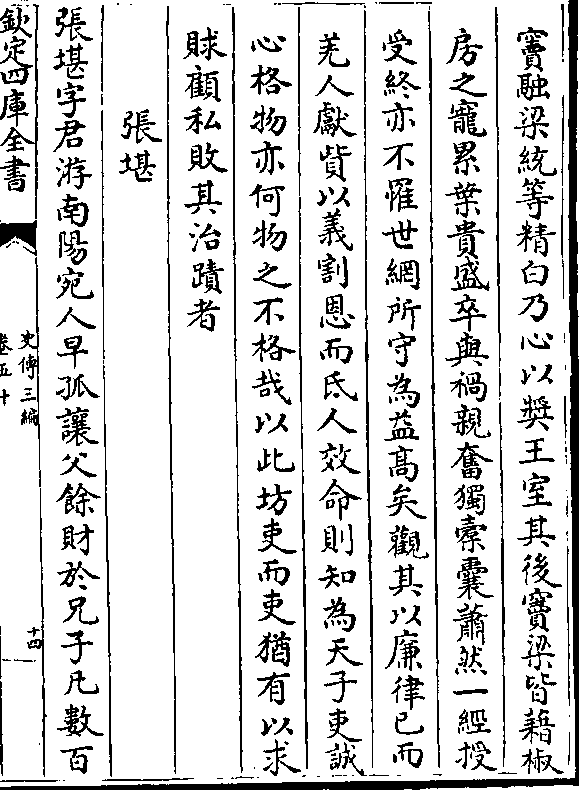 竇融梁統等精白乃心以奬王室其後竇梁皆藉椒
房之寵累葉貴盛卒與禍親奮獨橐囊蕭然一經授
受終亦不罹世網所守為益髙矣觀其以廉律已而
羌人獻貲以義割恩而氐人效命則知為天子吏誠
心格物亦何物之不格哉以此坊吏而吏猶有以求
賕顧私敗其治蹟者
張堪
張堪字君游南陽宛人早孤讓父餘財於兄子凡數百
欽定四庫全書
史傳三編
卷五十
十四